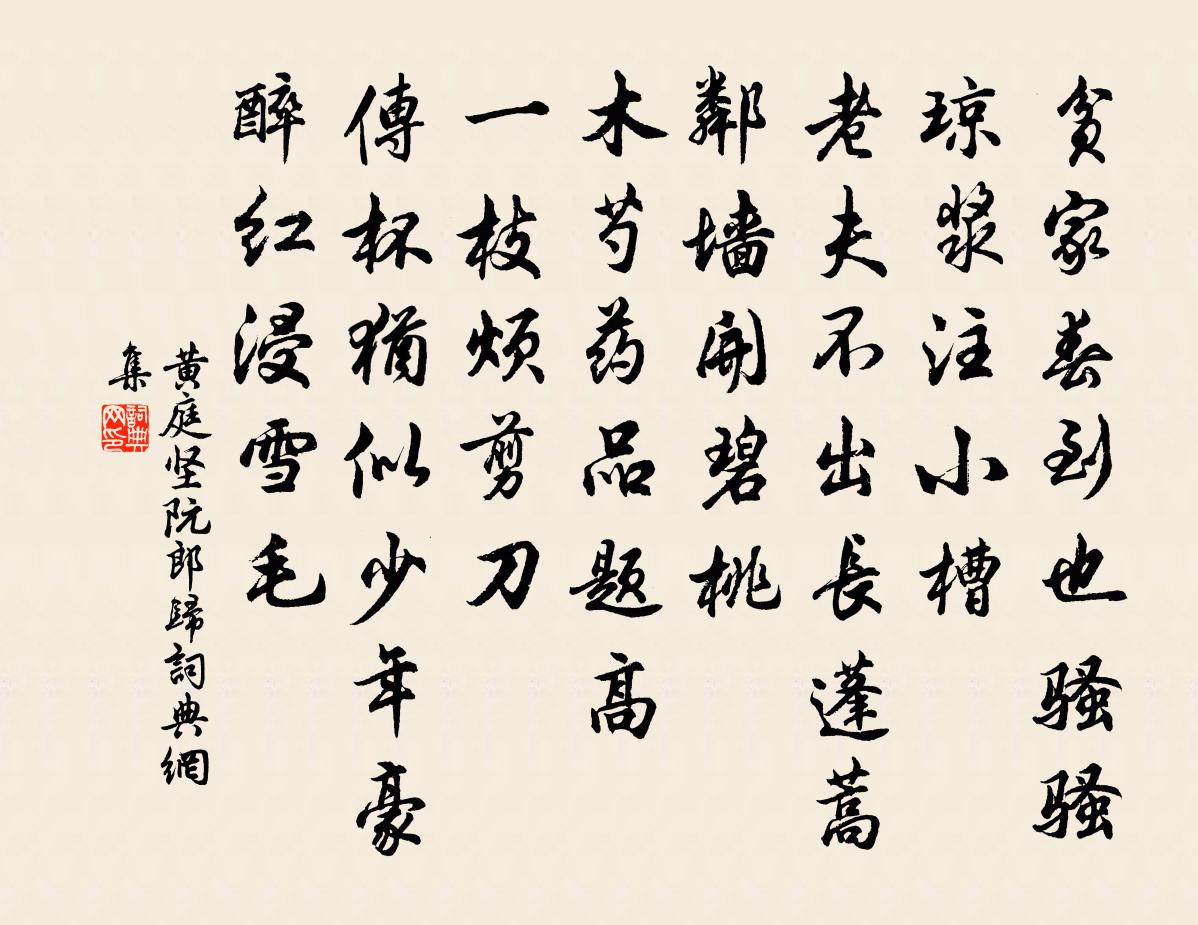 贫家春到也骚骚
琼浆注小槽
老夫不出長蓬蒿
鄰墙開碧桃
木芍药品题高
一枝烦剪刀
傳杯猶似少年豪
醉红浸雪毛
黄庭坚阮郎歸詞典網
集
詞典网印